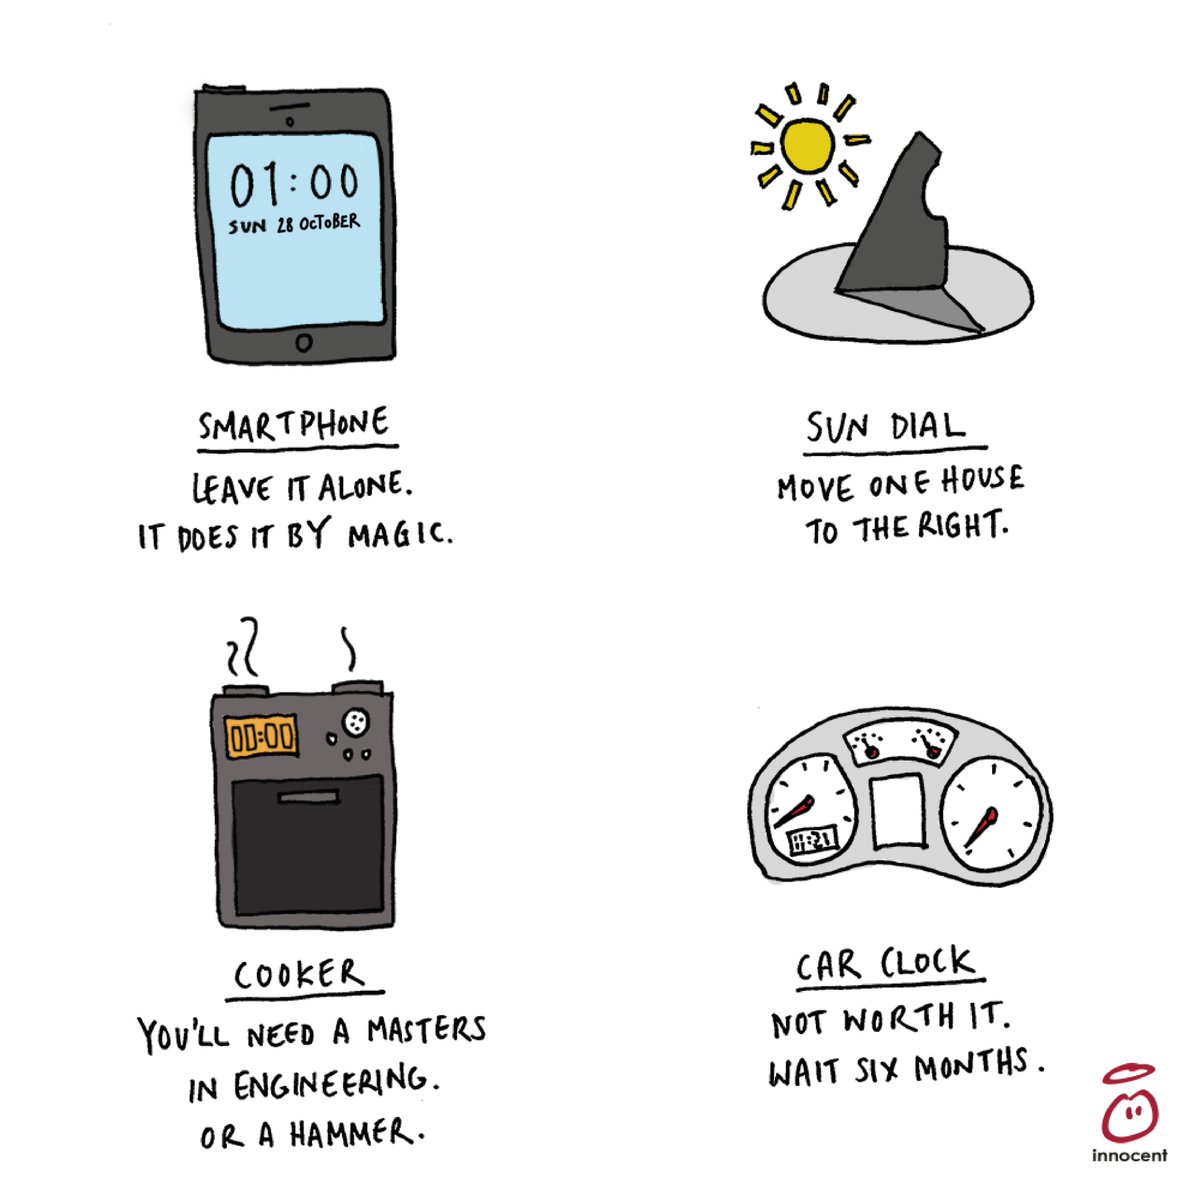 01:00
SUN 28 OCTOBER
SMARTPHONE
LEAVE IT ALONE.
IT DOES IT BY MAGIC.
SUN DIAL
MOVE ONE HOUSE
TO THE RIGHT.
00:00
COOKER
YOU'LL NEED A MASTERS
IN ENGINEERING.
OR A HAMMER.
11:21
CAR CLOCK
NOT WORTH IT.
WAIT SIX MONTHS.
innocent